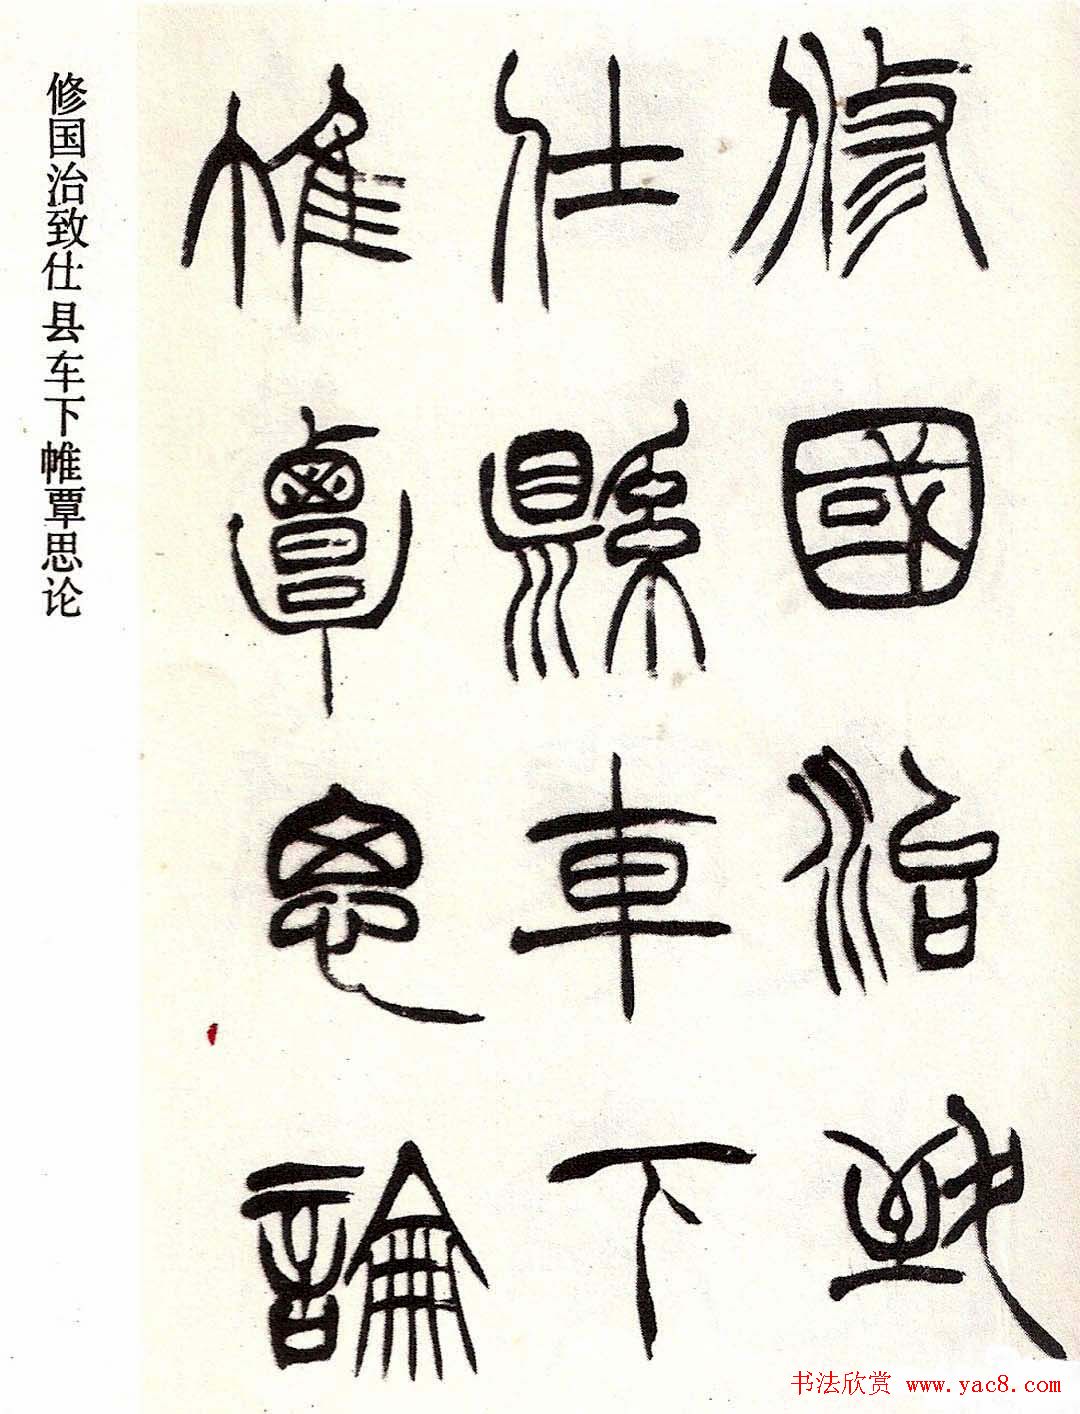 修國治致
仕縣車下
帷覃思論
修国治致仕县车下帷覃思论
书法欣赏 www.yac8.com